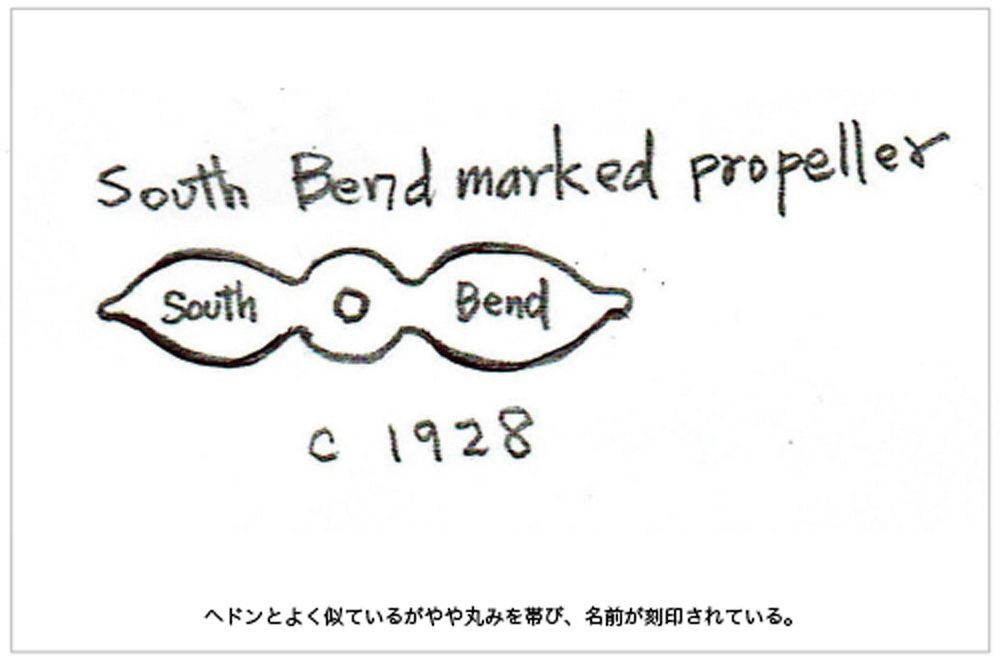 South Bend marked propeller
South Bend
c 1928
ヘドンとよく似ているがやや丸みを帯び、名前が刻印されている。